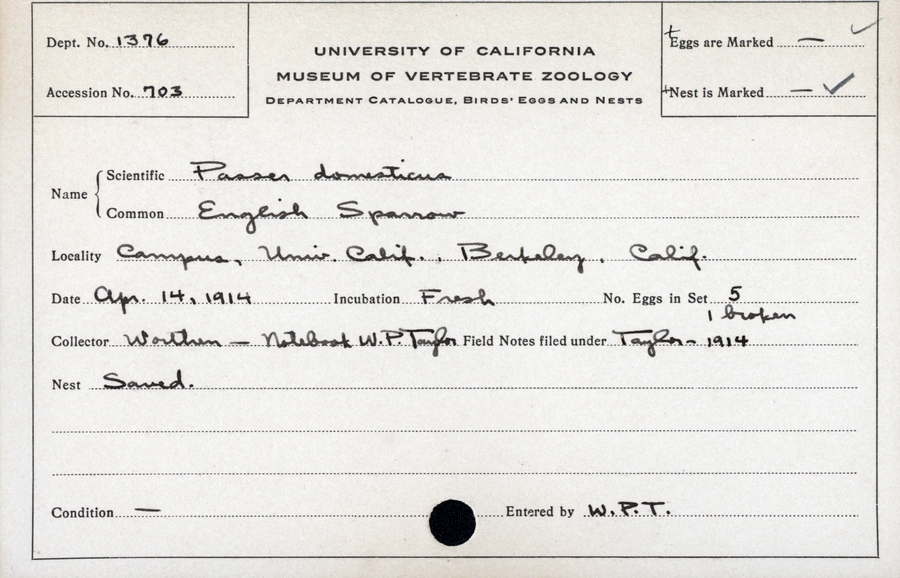 Dept. No. 1376
Accession No. 703
UNIVERSITY OF CALIFORNIA
MUSEUM OF VERTEBRATE ZOOLOGY
DEPARTMENT CATALOGUE, BIRDS' EGGS AND NESTS
Eggs are Marked — ✓
Nest is Marked — ✓
Name
Scientific Passer domesticus
Common English Sparrow
Locality Campus, Univ. Calif., Berkeley, Calif.
Date Apr. 14, 1914 Incubation Fresh No. Eggs in Set 5
1 broken
Collector Worthen — Notebook W.P. Taylor Field Notes filed under Taylor - 1914
Nest Saved.
Condition — Entered by W.P.T.